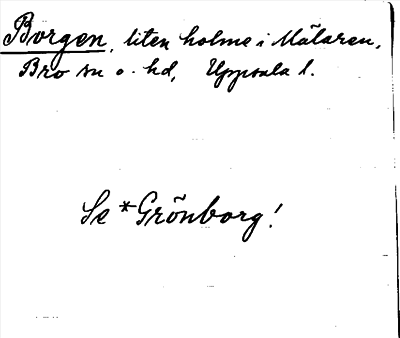 Borgen, liten holme i Mälaren,
Bro sn o. hd, Uppsala l.
Se *Grönborg!